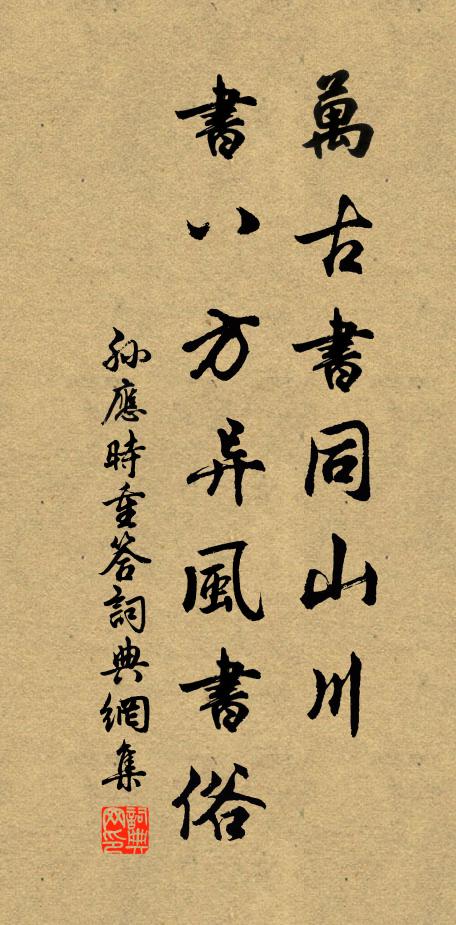 萬古書同山川
書八方异風書俗
孫應時重答詞典網集
詞典網印